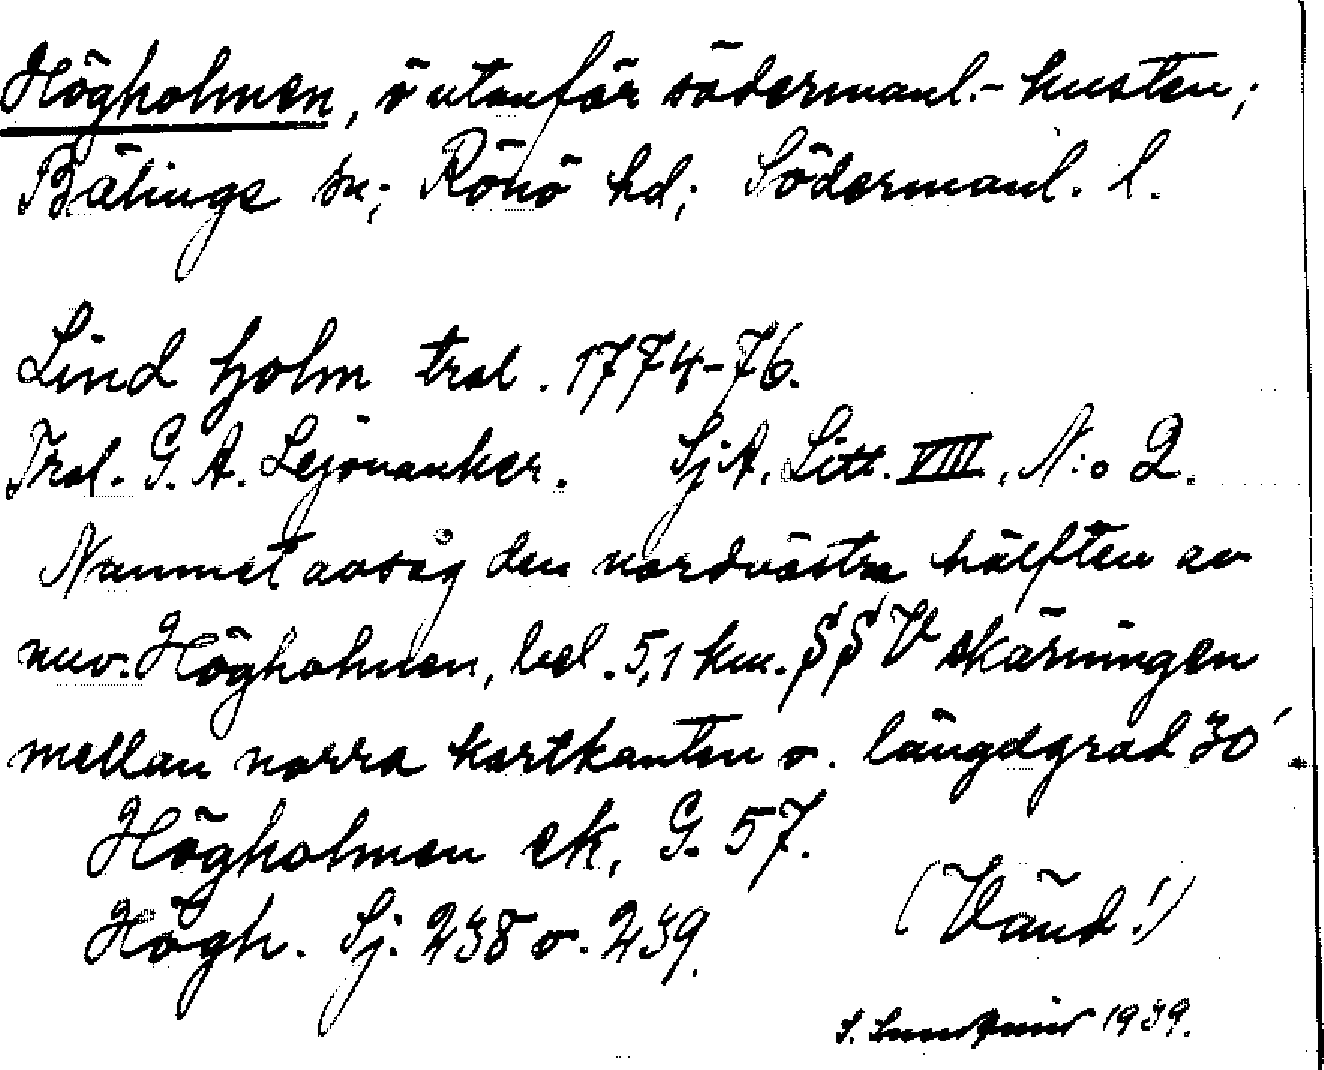 Högholmen, ö utanför södermanl.-kusten;
Bälinge sn; Rönö hd; Södermanl. l.
Lind holm tral. 1774-76.
Tral. G. A. Lejonanker. SjA. Litt. VIII, N:o 2.
Namnet avsåg den nordvästra hälften av
nuv. Högholmen, bel. 5,1 km. SSV skärningen
mellan norra kartkanten o. längdgrad 30'.
Högholmen ek. G. 57.
Högh. Sj. 238 o. 239.
(Vänd!)
S. 1939.